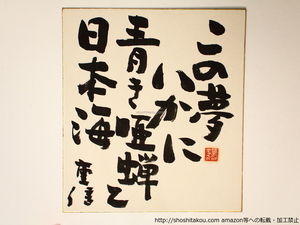 この夢
いかに
青き啞蟬と
日本海
http://shoshitakou.com amazon等への転載・加工禁止